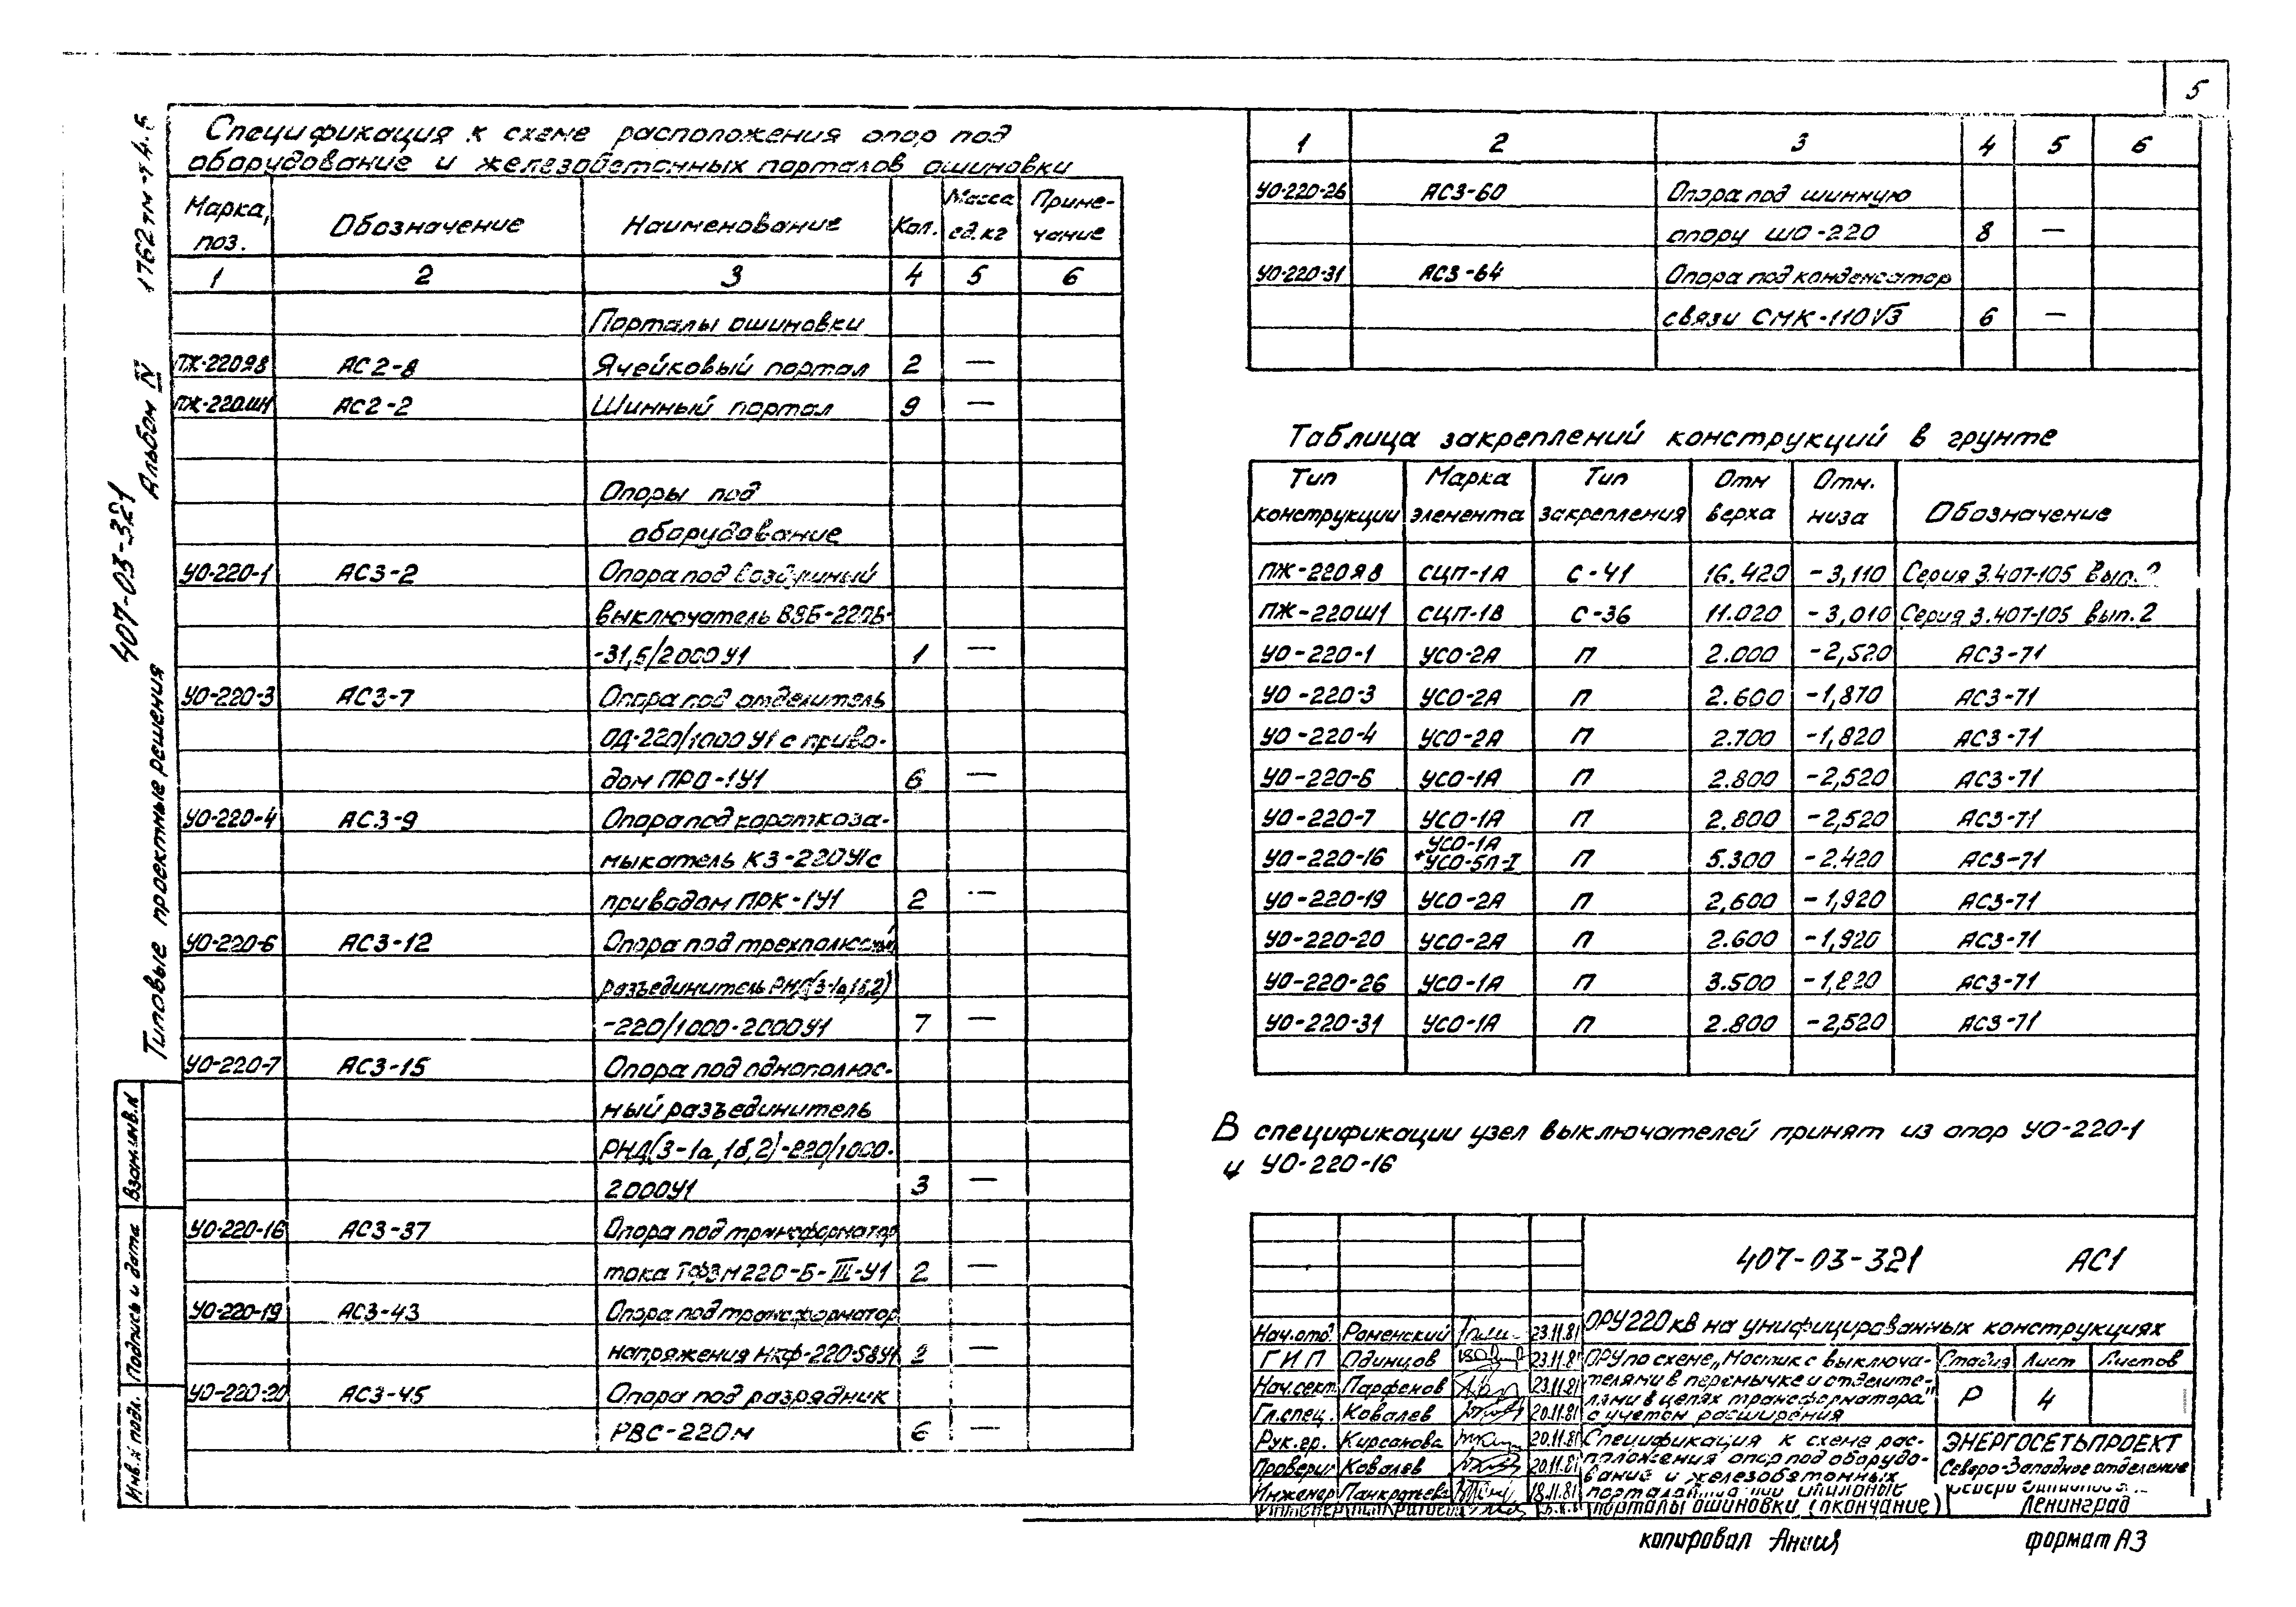 5
Спецификация к схеме расположения опор под
оборудование и железобетонных порталов ошиновки
Марка, поз. Обозначение Наименование Кол. Масса ед.кг Приме-чание
1 2 3 4 5 6
Порталы ошиновки
ПЖ-220Я8 АС2-8 Ячейковый портал 2 —
ПЖ-220Ш1 АС2-2 Шинный портал 9 —
Опоры под
оборудование
УО-220-1 АС3-2 Опора под воздушный
выключатель ВВБ-220Б-
-31,5/2000У1 1 —
УО-220-3 АС3-7 Опора под отделитель
ОД-220/1000У1 с приво-
дом ПРО-1У1 6 —
УО-220-4 АС3-9 Опора под короткоза-
мыкатель КЗ-220У1с
приводом ПРК-1У1 2 —
УО-220-6 АС3-12 Опора под трехполюсный
разъединитель РНД(З-1а,1б,2)
-220/1000-2000У1 7 —
УО-220-7 АС3-15 Опора под однополюс-
ный разъединитель
РНД(З-1а,1б,2)-220/1000-
2000У1 3 —
УО-220-16 АС3-37 Опора под трансформатор
тока ТФЗМ220-Б-III-У1 2 —
УО-220-19 АС3-43 Опора под трансформатор
напряжения НКФ-220-58У1 2 —
УО-220-20 АС3-45 Опора под разрядник
РВС-220м 6 —
1 2 3 4 5 6
УО-220-26 АС3-60 Опора под шинную
опору ШО-220 8 —
УО-220-31 АС3-64 Опора под конденсатор
связи СМК-110√3 6 —
Таблица закреплений конструкций в грунте
Тип конструкции Марка элемента Тип закрепления Отм верха Отм. низа Обозначение
ПЖ-220Я8 СЦП-1А С-41 16.420 -3,110 Серия 3.407-105 вып.2
ПЖ-220Ш1 СЦП-1В С-36 11.020 -3,010 Серия 3.407-105 вып.2
УО-220-1 УСО-2А П 2.000 -2,520 АС3-71
УО-220-3 УСО-2А П 2.600 -1,870 АС3-71
УО-220-4 УСО-2А П 2.700 -1,820 АС3-71
УО-220-6 УСО-1А П 2.800 -2,520 АС3-71
УО-220-7 УСО-1А П 2.800 -2,520 АС3-71
УО-220-16 УСО-1А +УСО-5П-I П 5.300 -2.420 АС3-71
УО-220-19 УСО-2А П 2,600 -1,920 АС3-71
УО-220-20 УСО-2А П 2.600 -1,920 АС3-71
УО-220-26 УСО-1А П 3.500 -1,820 АС3-71
УО-220-31 УСО-1А П 2.800 -2,520 АС3-71
В спецификации узел выключателей принят из опор УО-220-1
и УО-220-16
407-03-321 АС1
ОРУ 220кВ на унифицированных конструкциях
Нач.отд. Роменский 23.11.81
ГИП Одинцов 23.11.81
Нач.сект. Парфенов 23.11.81
Гл.спец. Ковалев 20.11.81
Рук.гр. Кирсанова 20.11.81
Проверил Ковалев 20.11.81
Инженер Панкратьева 18.11.81
ОРУ по схеме „Мостик с выключа-
телями в перемычке и отделите-
лями в цепях трансформатора"
с учетом расширения
Стадия Лист Листов
Р 4
Спецификация к схеме рас-
положения опор под оборудо-
вание и железобетонных
порталы ошиновки (окончание)
ЭНЕРГОСЕТЬПРОЕКТ
Северо-Западное отделение
Ленинград
копировал
формат А3
Типовые проектные решения 407-03-321 Альбом IV 1762тм-т4.5
Взам.инв.N
Подпись и дата
Инв.N подл.